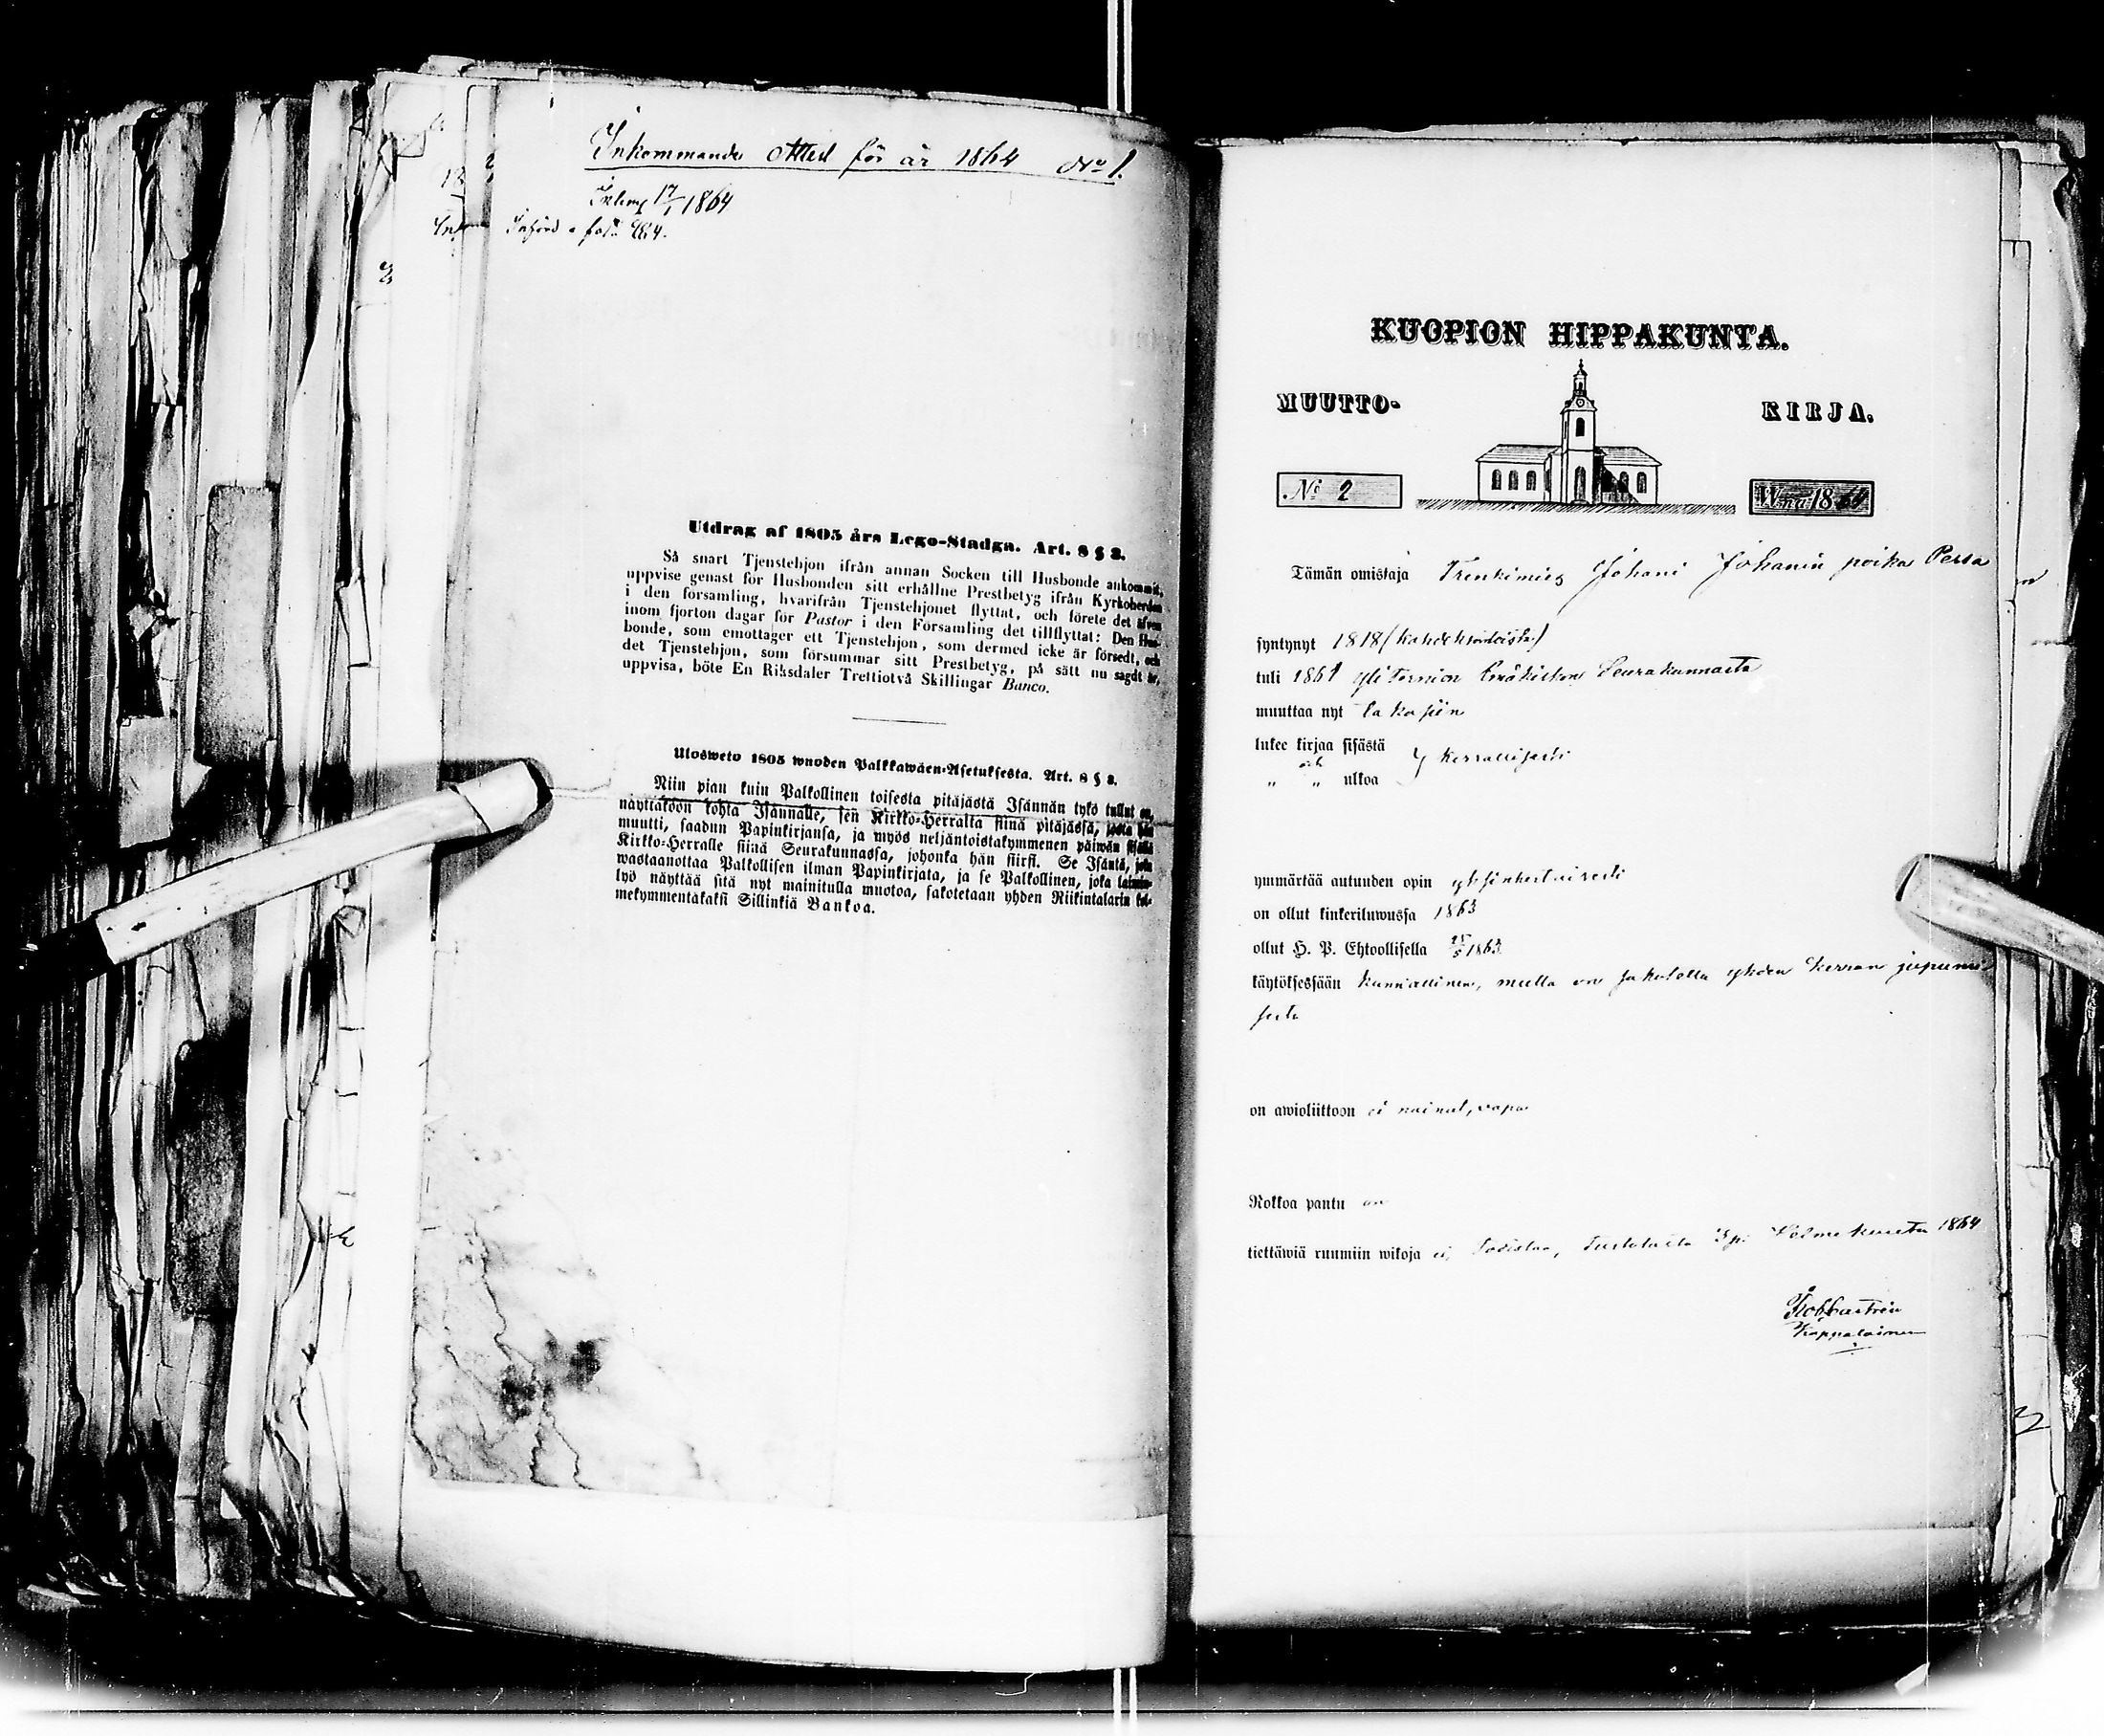 Inkommande Attest för år 1864 No 1.
Inlemn 17/1 1864
Införd
Utdrag af 1805 års Lego-Stadga. Art. 8 § 8.
Så snart Tjenstehjon ifrån annan Socken till Husbonde ankommit,
uppvise genast för Husbonden sitt erhållne Prestbetyg ifrån Kyrkoherden
i den församling, hvarifrån Tjenstehjonet flyttat, och förete det äfven
inom fjorton dagar för Pastor i den Församling det tillflyttat: Den Hus-
bonde, som emottager ett Tjenstehjon, som dermed icke är försedt, och
det Tjenstehjon, som försummar sitt Prestbetyg, på sätt nu sagdt är,
uppvisa, böte En Riksdaler Trettiotvå Skillingar Banco.
Ulosweto 1805 wuoden Palkkawäen-Asetuksesta. Art. 8 § 8.
Niin pian kuin Palkollinen toisesta pitäjästä Isännän tykö tullut on,
näyttäköön kohta Isännälle, sen Kirkko-Herralta siinä pitäjässä, josta hän
muutti, saadun Papinkirjansa, ja myös neljäntoistakymmenen päiwän sisällä
Kirkko-Herralle siinä Seurakunnassa, johonka hän siirsi. Se Isäntä, joka
wastaanottaa Palkollisen ilman Papinkirjata, ja se Palkollinen, joka laimin-
lyö näyttää sitä nyt mainitulla muotoa, sakotetaan yhden Riikintalarin kol-
mekymmentäkaksi Sillinkiä Bankoa.
KUOPION HIPPAKUNTA.
MUUTTO- KIRJA.
No 2 W:na 1864
Tämän omistaja Trenkimies Johani Johanin poika Perra
syntynyt 1818
tuli 1861 Yli Tornion Seurakunnasta
muuttaa nyt takasiin
lukee kirja sisästä
och kerrallisesti
" " ulkoa
ymmärtää autuuden opin yksinkertaisesti
on ollut kinkeriluwussa 1863
ollut H. P. Ehtoollisella 1863
käytöksessään kunniallinen, mutta on sakotettu yhden kerran juopumi
sesta
on awioliittoon ei nainut, vapa
Rokkoa pantu on
tiettäwiä ruumiin wikoja ei, Todistaa, 3 p. 1864
Kappalainen